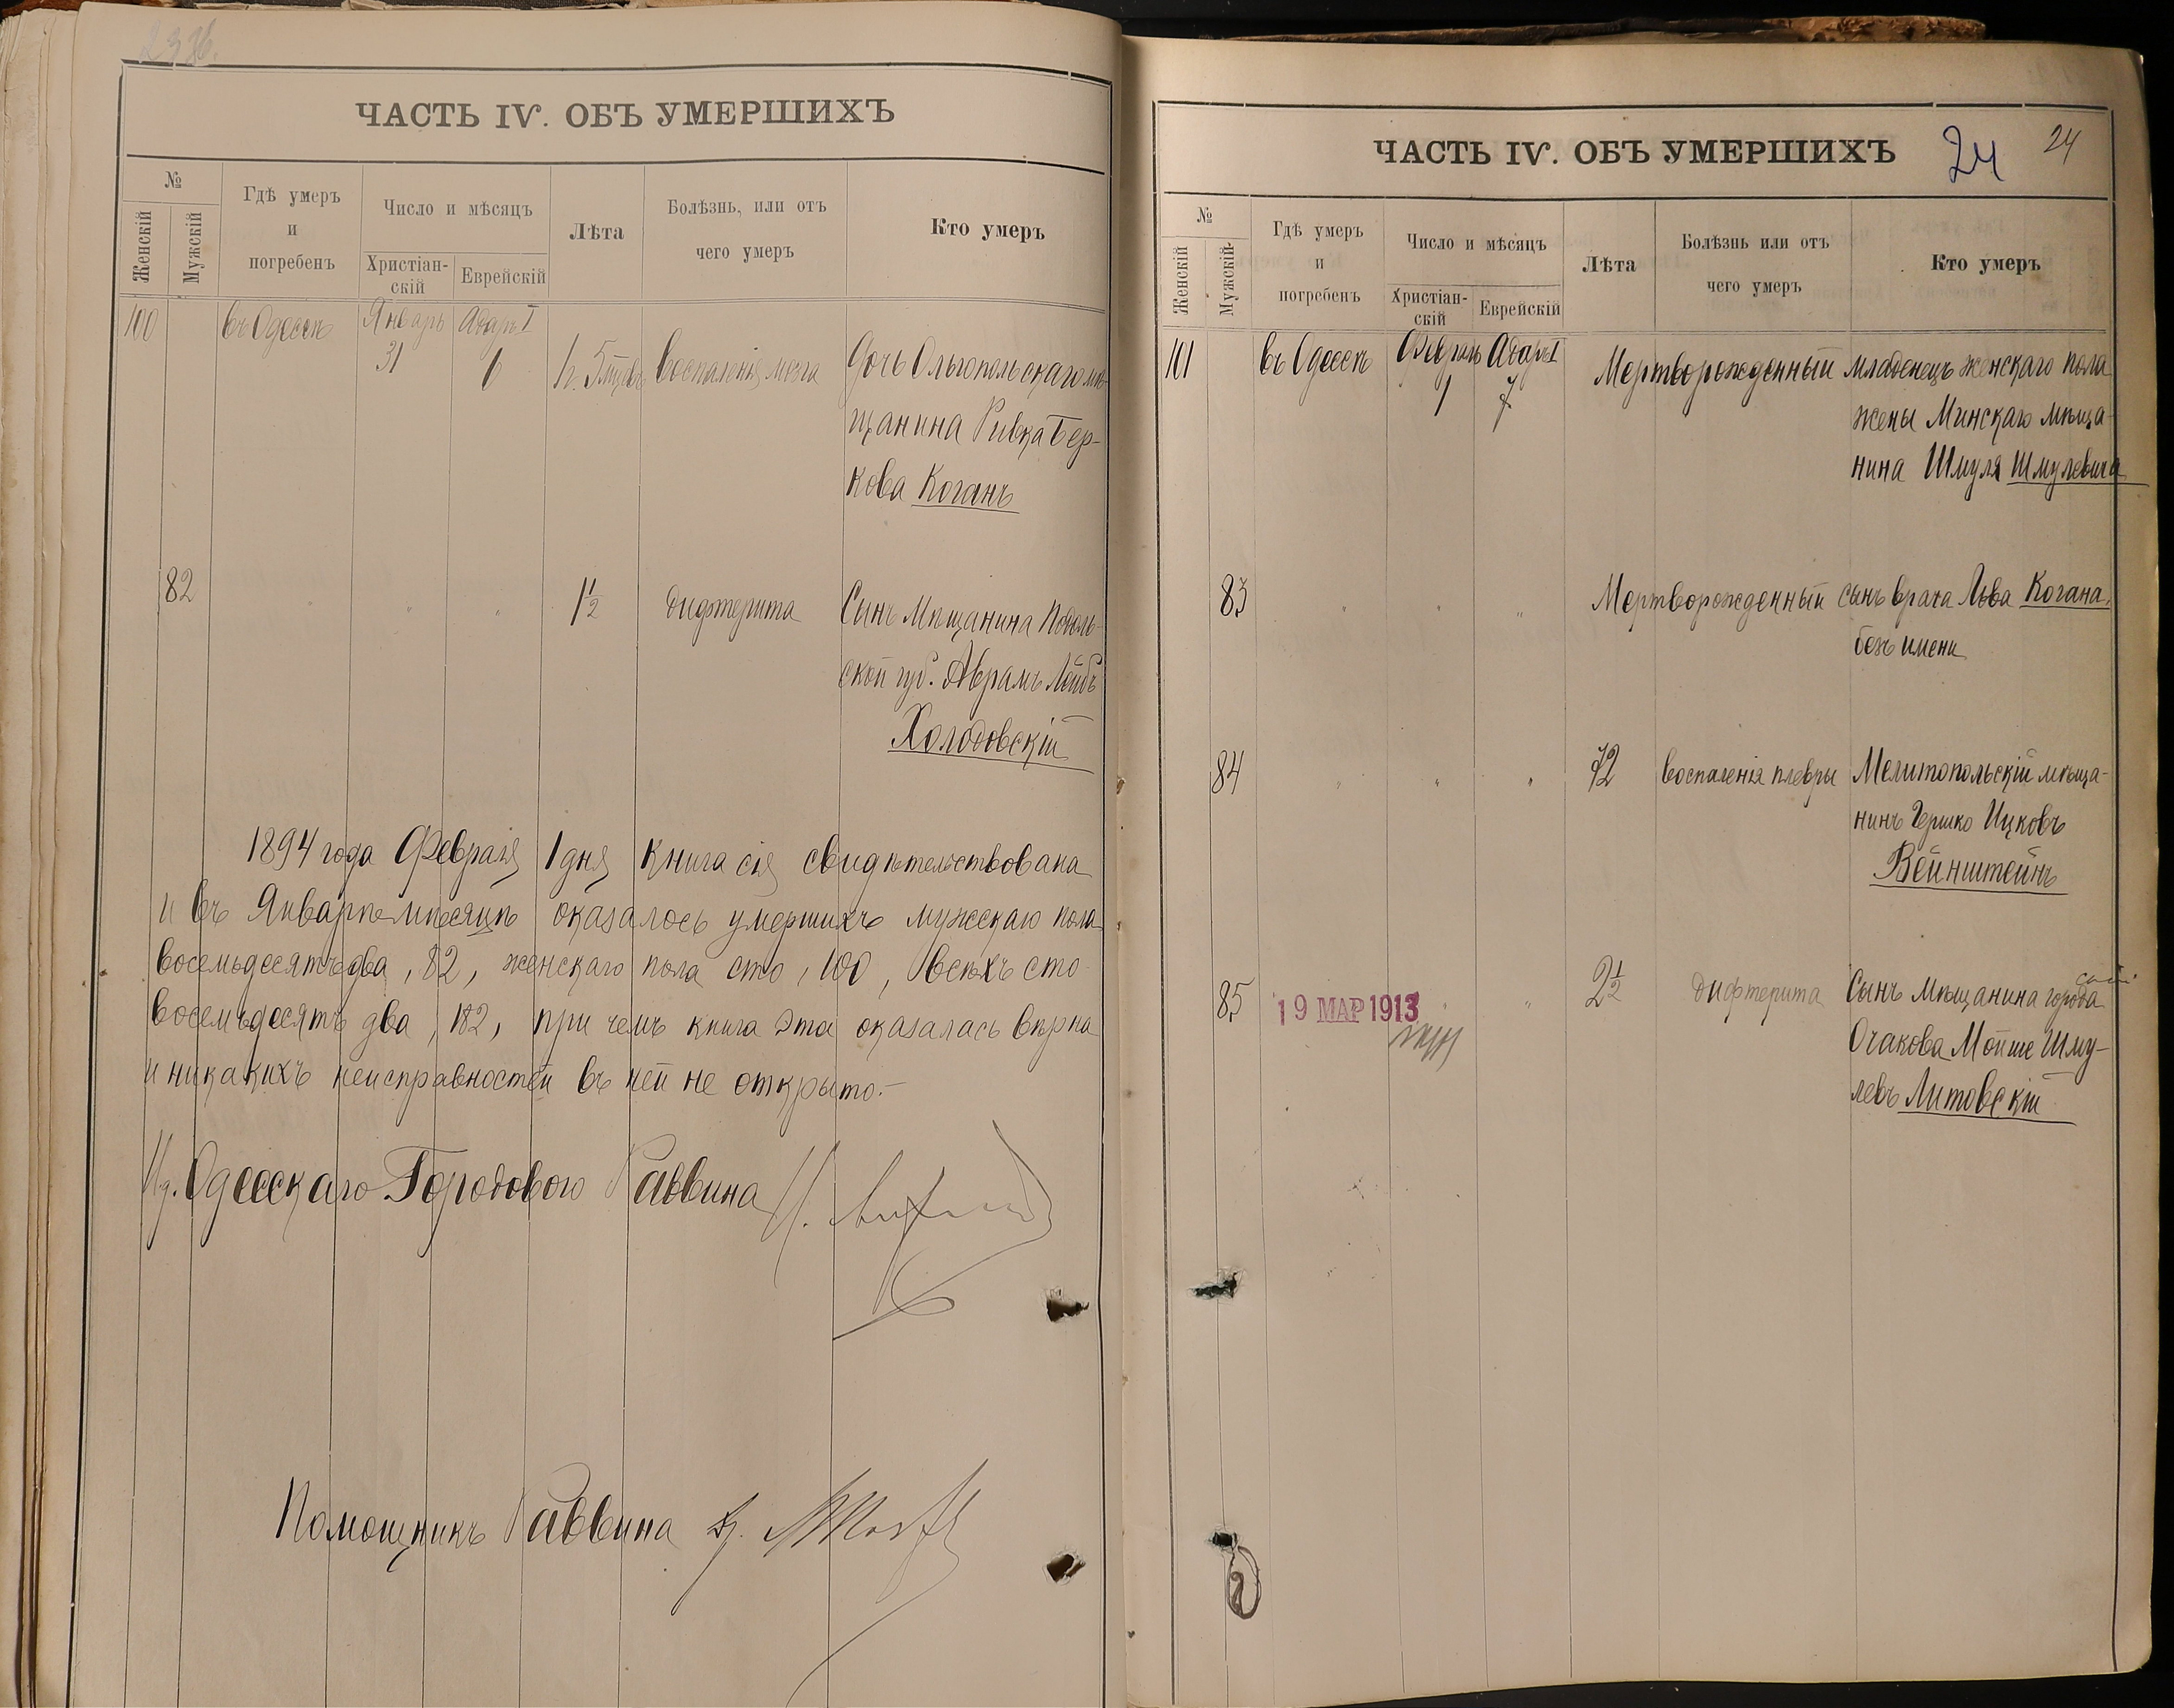 23 об.
ЧАСТЬ IV. ОБЪ УМЕРШИХЪ
№
Женскій
Мужскій
Гдѣ умеръ
и
погребенъ
Число и мѣсяцъ
Христіан-
скій
Еврейскій
Лѣта
Болѣзнь, или отъ
чего умеръ
Кто умеръ
100 въ Одессѣ Январь Адаръ I
31 6 1 г. 5 мѣсяц. воспаленія мозга Дочь Ольгопольскаго мѣ-
щанина Ривка Бер-
кова Коганъ
82 " " " 1 1/2 дифтерита Сынъ Мѣщанина Подоль-
ской губ. Аврамъ Лейбъ
Холодовскій
1894 года Февраля 1 дня книга сія свидѣтельствована
и въ Январѣ мѣсяцѣ оказалось умершихъ мужскаго пола
восемьдесятъ два, 82, женскаго пола сто, 100, всѣхъ сто
восемьдесятъ два, 182, при чемъ книга эта оказалась вѣрна
и никакихъ неисправностей въ ней не открыто.-
И.д. Одесскаго Городового Раввина
Помощникъ Раввина
ЧАСТЬ IV. ОБЪ УМЕРШИХЪ
24
24
№
Женскій
Мужскій
Гдѣ умеръ
и
погребенъ
Число и мѣсяцъ
Христіан-
скій
Еврейскій
Лѣта
Болѣзнь или отъ
чего умеръ
Кто умеръ
101 въ Одессѣ Февраль Адаръ I Мертворожденный младенецъ женскаго пола
1 7 жены Минскаго мѣща-
нина Шмуля Шмулевича
83 " " " Мертворожденный сынъ врача Льва Когана,
безъ имени
84 " " " 72 воспаленія плевры Мелитопольскій мѣща-
нинъ Гершко Ицковъ
Вейнштейнъ
85 19 МАР 1913 " " 2 1/2 дифтерита Сынъ Мѣщанина города
Очакова Мойше Шму-
левъ Литовскій